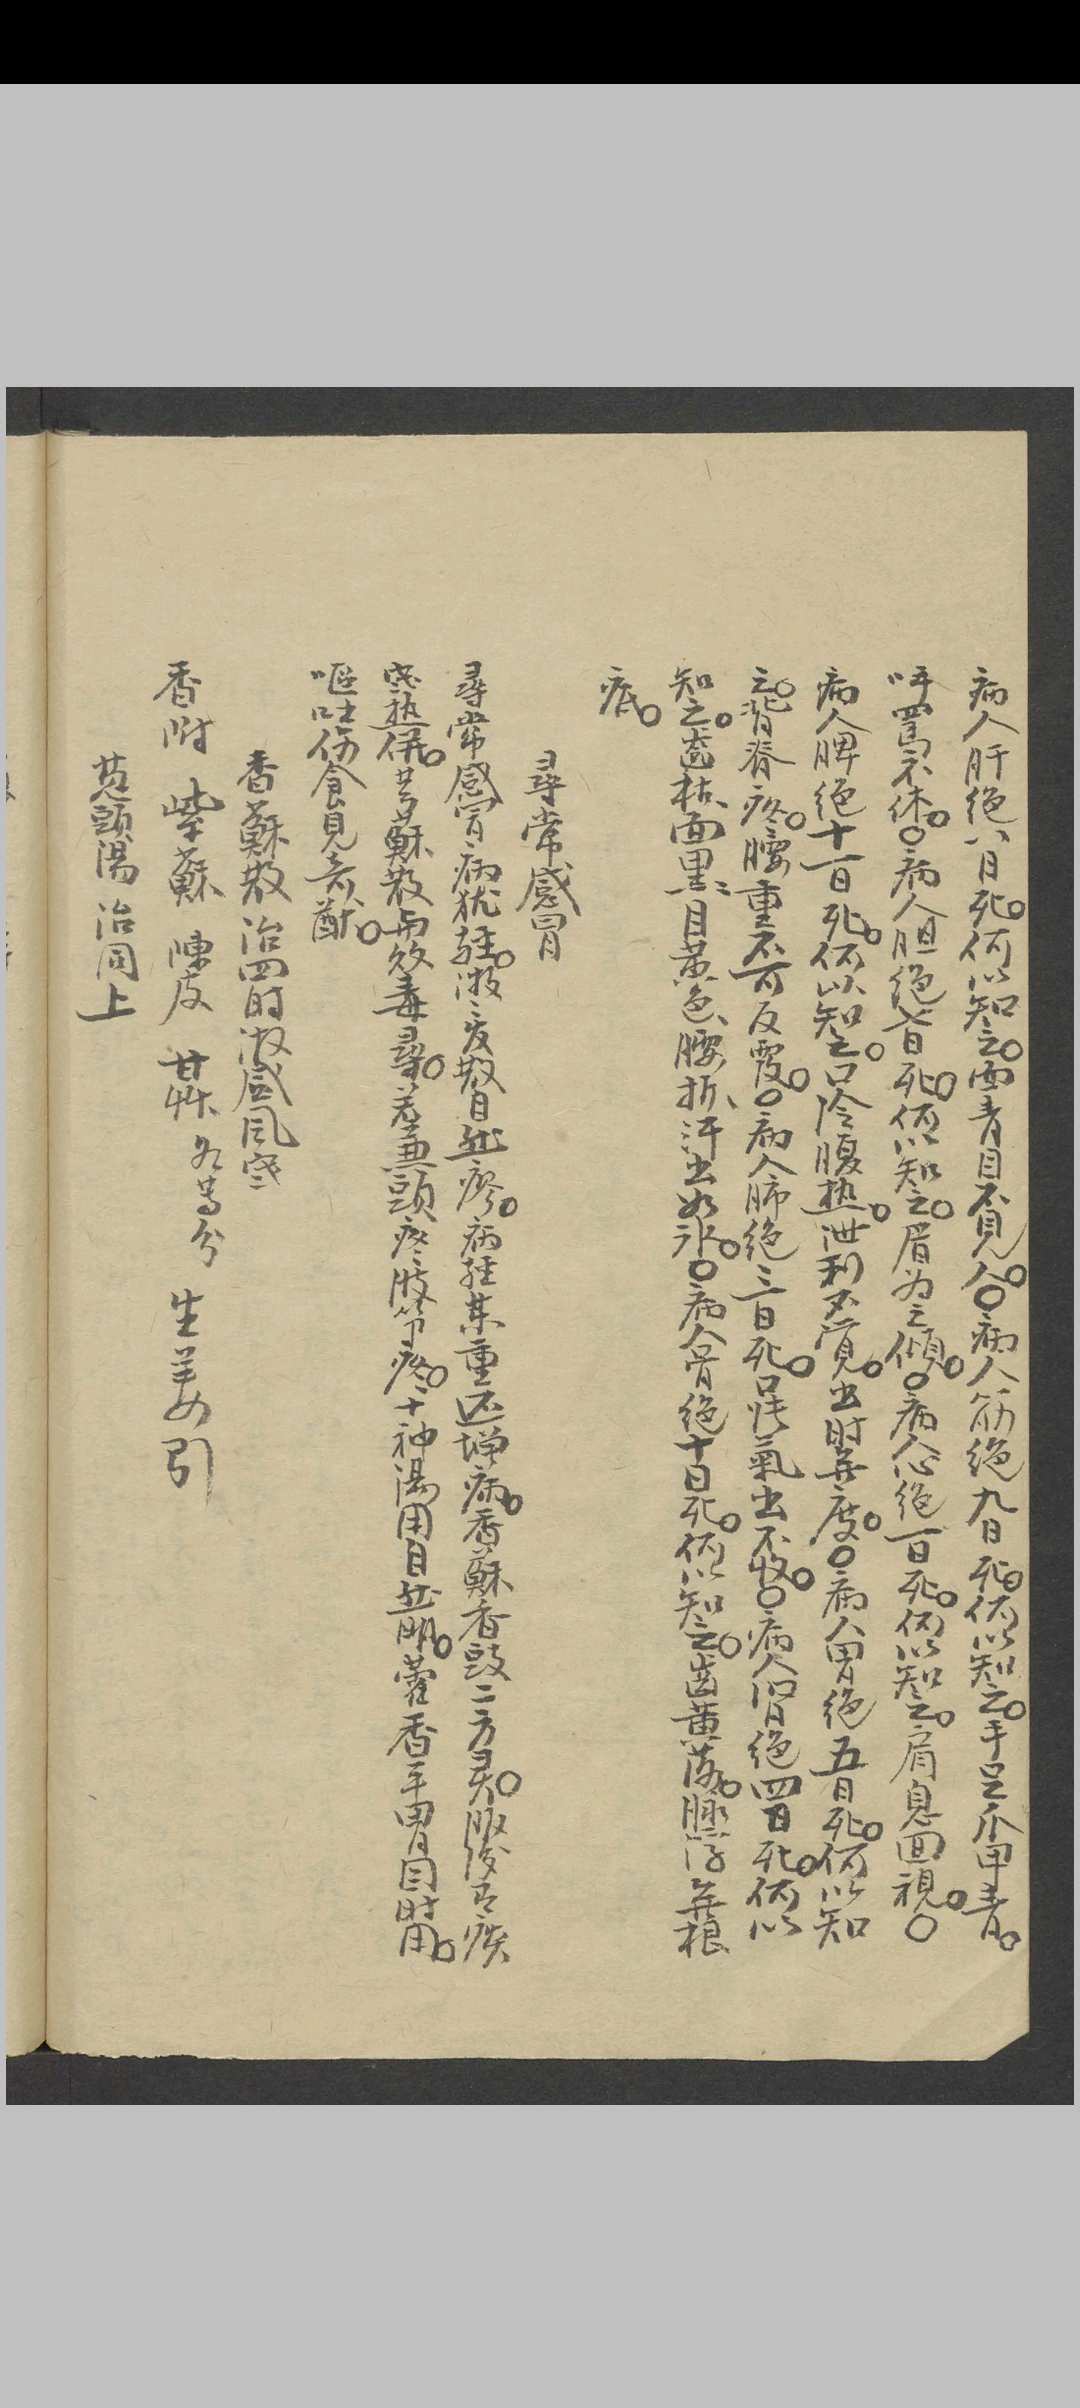 病人肝絕八日死。何以知之。面青目不見人。○病人筋絕九日死。何以知之。手足爪甲青。
呼罵不休。○病人胆絕七日死。何以知之。眉為之傾。○病人心絕一日死。何以知之。肩息回視。○
病人脾絕十二日死。何以知之。口冷腹热。泄利不覚。出時無度。○病人胃絕五日死。何以知
之。背脊疼。腰重不可反覆。○病人肺絕三日死。口張氣出不收。○病人腎絕四日死。何以
知之。齒枯、面黑、目黃色、腰折、汗出如水。○病人骨絕十日死。何以知之。齒黃落。脈浮無根
底。
尋常感冒
尋常感冒病猶輕。微微發散自然瘳。病輕葉重还增病。香蘇香豉二方灵。服後有痰
寒热併。芎蘇散與敗毒尋。若兼頭疼肢節疼。十神湯用自然明。藿香平胃同時用。
嘔吐傷食見者猷。
香蘇散 治四時感風寒
香附 紫蘇 陳皮 甘艸 各等分 生姜引
葱頭湯 治同上